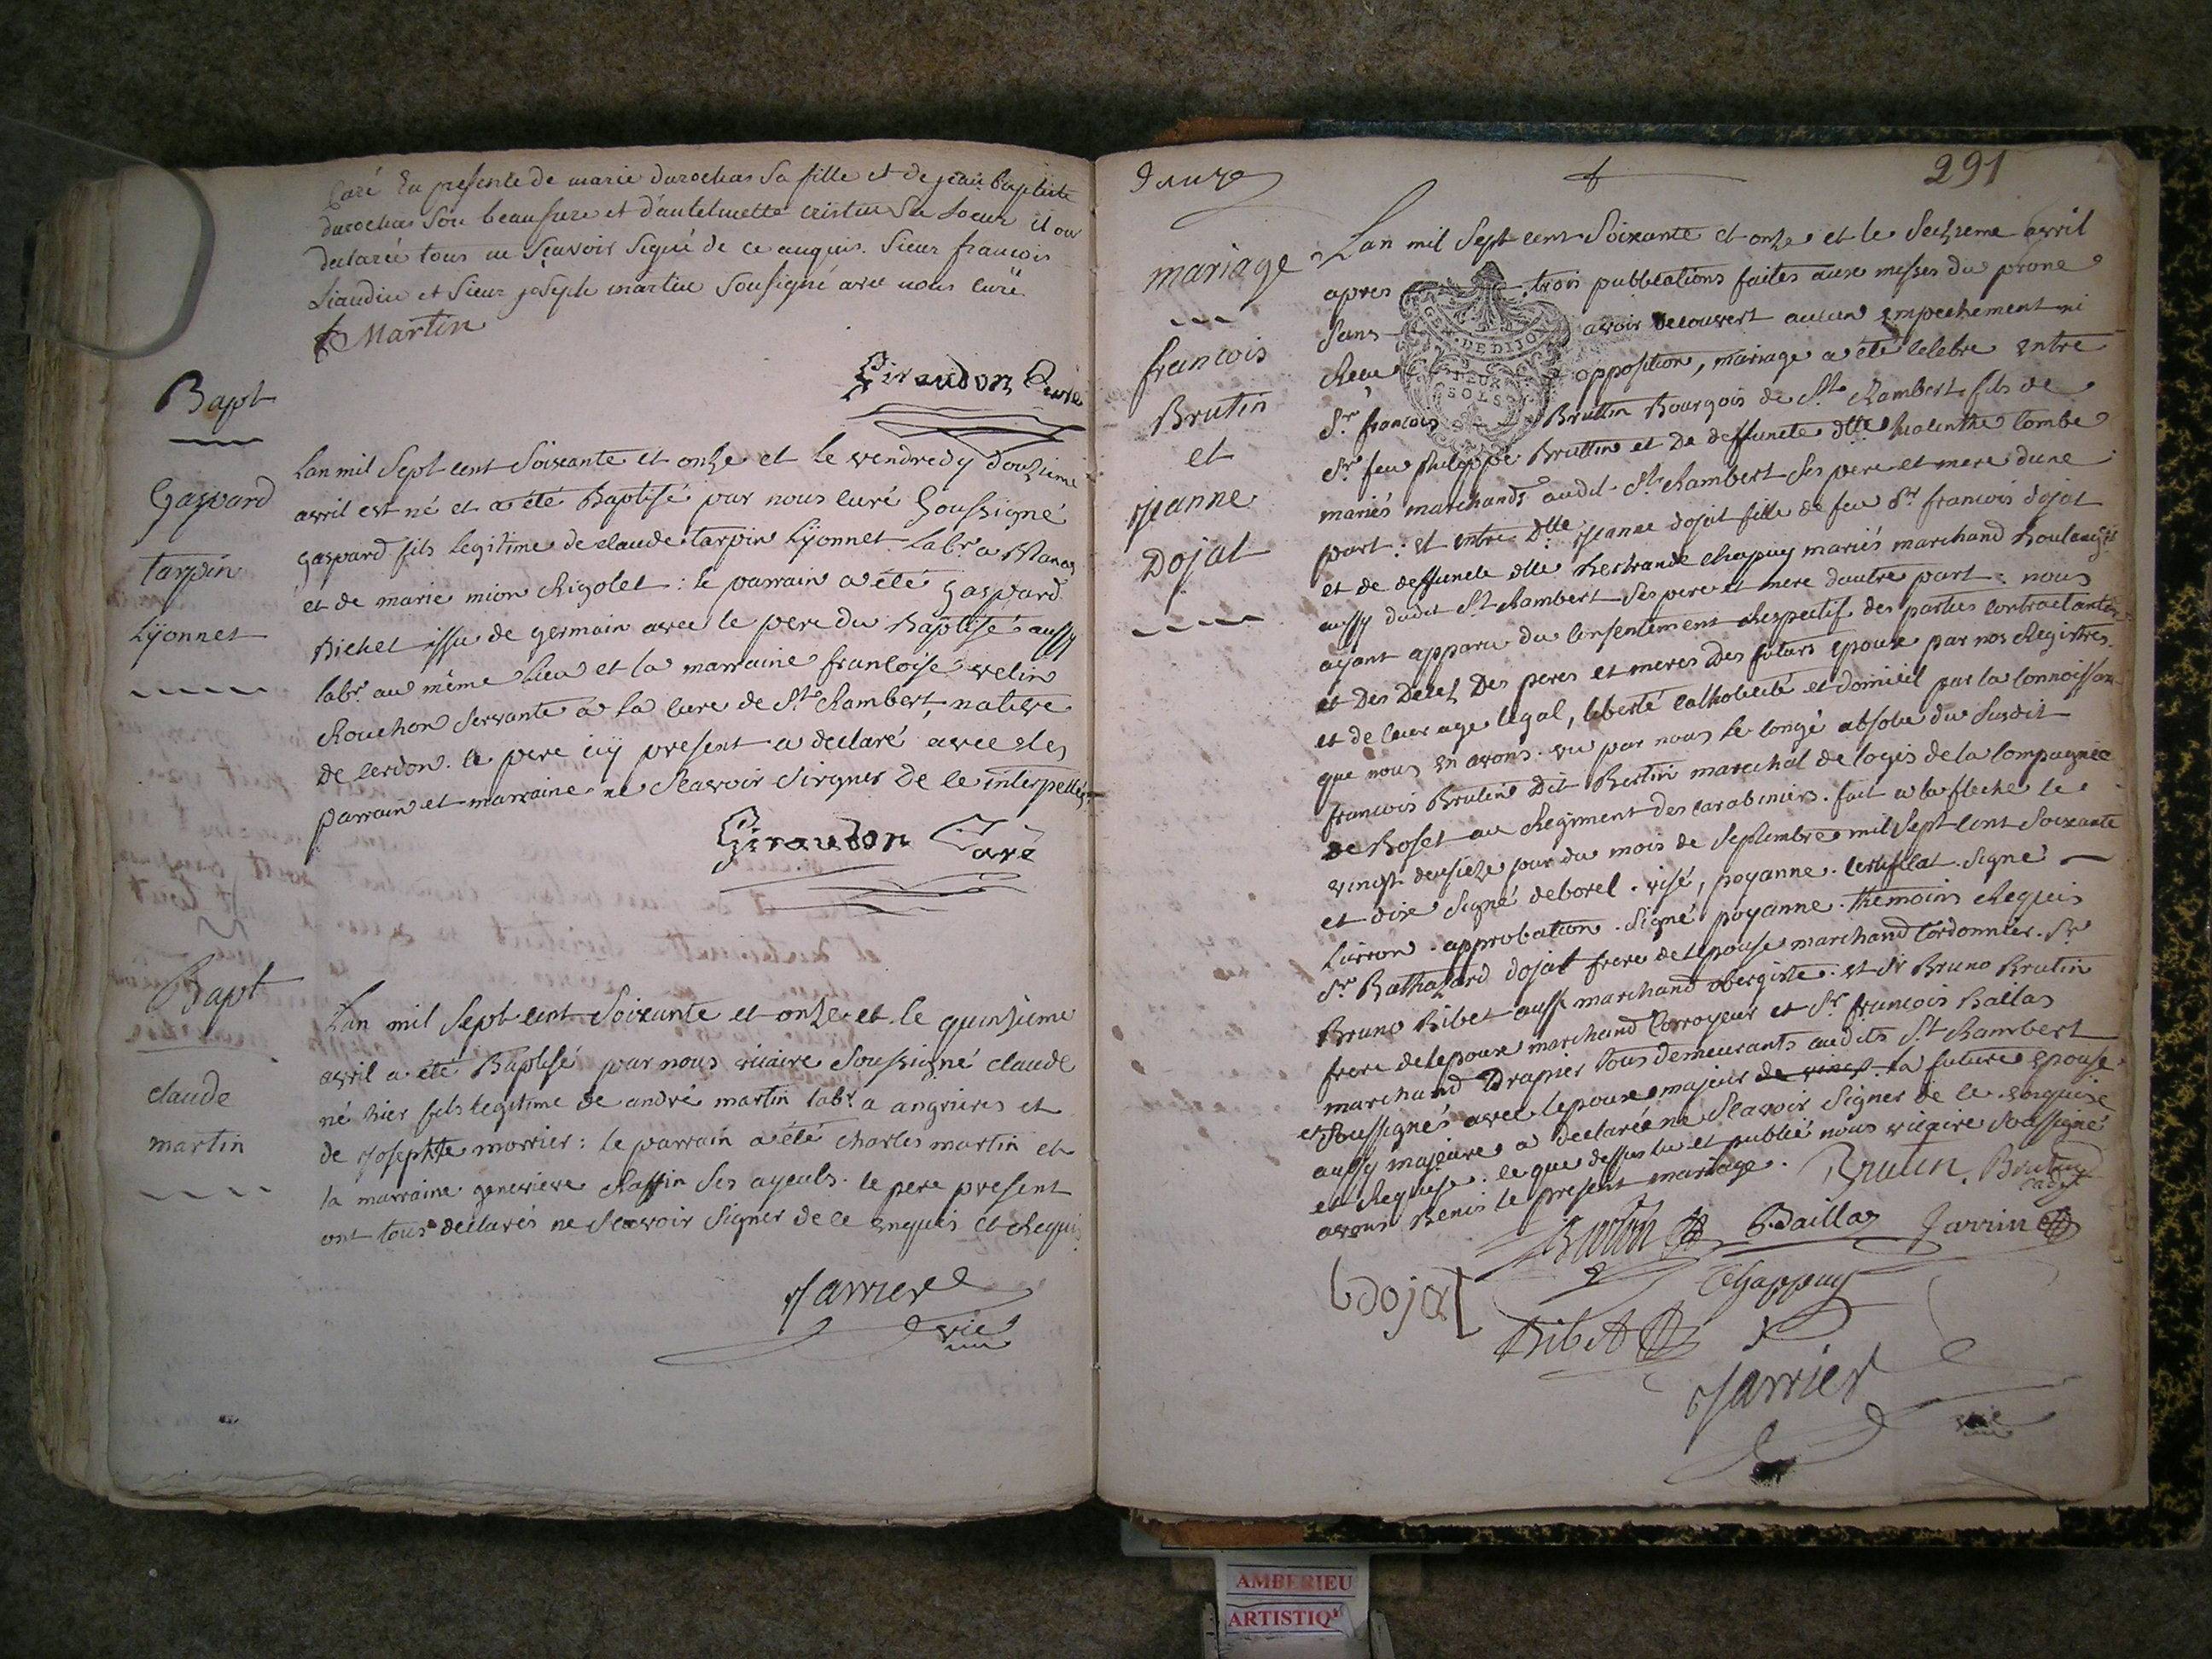 Curé En presente de marie durochas Sa fille et de jean baptiste
durochas Son beaufrere et d'antelmette cristin Sa Soeur il on
declarée tous ne Sçavoir Signé de ce anquis. Sieur francois
Liaudin et Sieur joseph martin Sousigné avec nous curé
Martin
Giraudon Curé
Bapt
Gaspard
tarpin
Lÿonnet
Lan mil Sept cent Soixante et onze et le vendredy douzieme
avril est né et a été Baptisé par nous curé Soussigné
gaspard fils legitime de claude tarpin Lÿonnet Labr a Blanas
et de marie mion Rigolet : le parrain a été gaspard
Bichet issu de germain avec le pere du Baptisé aussy
labr au même lieu et la marraine francoise velin
Rouchon servante a la cure de St Rambert, native
de cerdon. le pere icy present a declaré avec les
parrain et marraine ne Scavoir Sirgner De ce interpellez
Giraudon Curé
Bapt
claude
martin
Lan mil Sept cent Soixante et onze et le quinzieme
avril a été Baptisé par nous vicaire Soussigné claude
né hier fils legitime de andré martin labr a angrieres et
de Josephte morrier : le parrain a été charles martin et
la marraine genevieve Raffin Ses ayeuls. le pere present
ont tous declarés ne Scavoir Signer de ce enquis et Requis
Jarrier
vic
291
mariage
francois
Brutin
et
jeanne
Dojat
Lan mil Sept cent Soixante et onze et le Seizieme avril
apres trois publications faites aux messes du prone
Sans avoir decouvert aucun empechement ni
Reçu opposition, mariage a été celebre entre
GEN. DE DIJON
DEUX
SOLS
Sr francois Bruttin Bourgois de St Rambert fils de
Sr feu philippe Bruttin et De deffuncte dlle hiacinthe combe
mariés marchands audit St Rambert Ses pere et mere dune
part : et entre Dlle jeanne dojat fille de feu Sr francois dojat
et de deffuncte dlle Bertrande chapuy mariés marchand Boulangers
aussy dudit St Rambert Ses pere et mere dautre part : nous
ayant apparu du consentement Respectif des parties contractantes
et Des Decez Des peres et meres Des futurs epoux par nos Registres
et de leur age legal, liberté catholicité et domicil par la connoissan
que nous en avons. vu par nous le congé absolu du Susdit
francois Brutin Dit Bertin marechal de logis de la compagnie
de Boset au Regiment des carabiniers. fait a la fleche le
vingt deuxieze jour du mois de Septembre mil Sept cent Soixante
et dix Signé deborel. visé, poyanne. certificat. Signé
Lirron. approbation. Signé poyanne. themoins Requis
Sr Bathazard dojat frere de lepouse marchand cordonnier. Sr
Bruno Ribet aussi marchand obergiste. et Sr Bruno Brutin
frere de lepoux marchand Corroyeur et Sr francois Baillas
marchand Drapier tous demeurants audits St Rambert
et Soussignés avec lepoux majeur de vingt la future epouse
aussy majeure a declarée ne Scavoir Signer de ce enquise
et Requise. ce que dessus lu et publié nous vicaire Soussigné
avons Benis le present mariage.
Brutin. Brutin
cadet
Brutin Baillas Jarrin
Bdojat Chappuy
Ribet
Jarrier
vic
AMBERIEU
ARTISTIQ